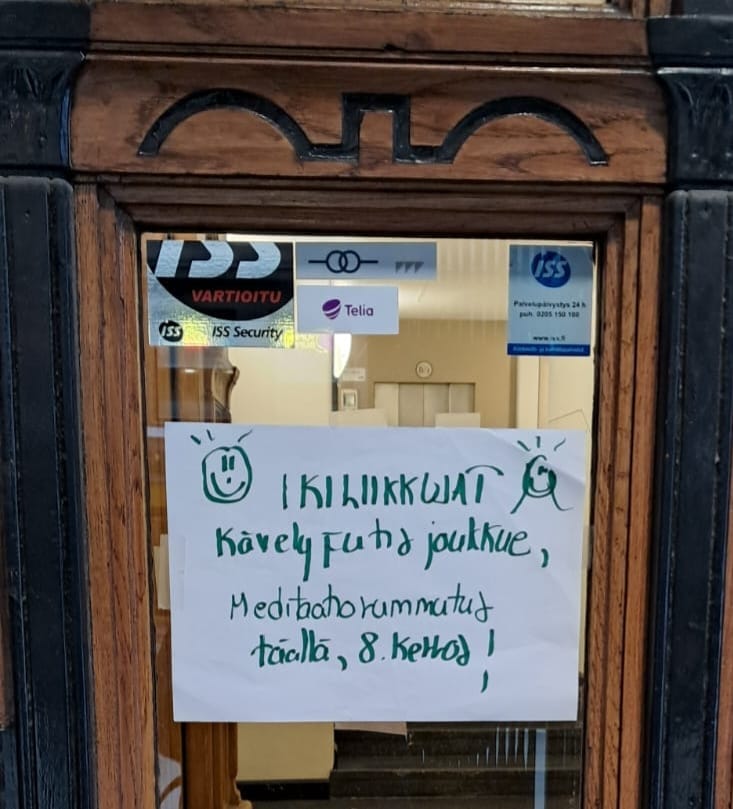 ISS
VARTIOITU
ISS ISS Security
Telia
ISS
Palvelupäivystys 24 h
puh. 0205 150 150
www.iss.fi
IKILIIKKUJAT
Kävely Futis joukkue,
Meditaatiorummutus
täällä, 8. kerros!